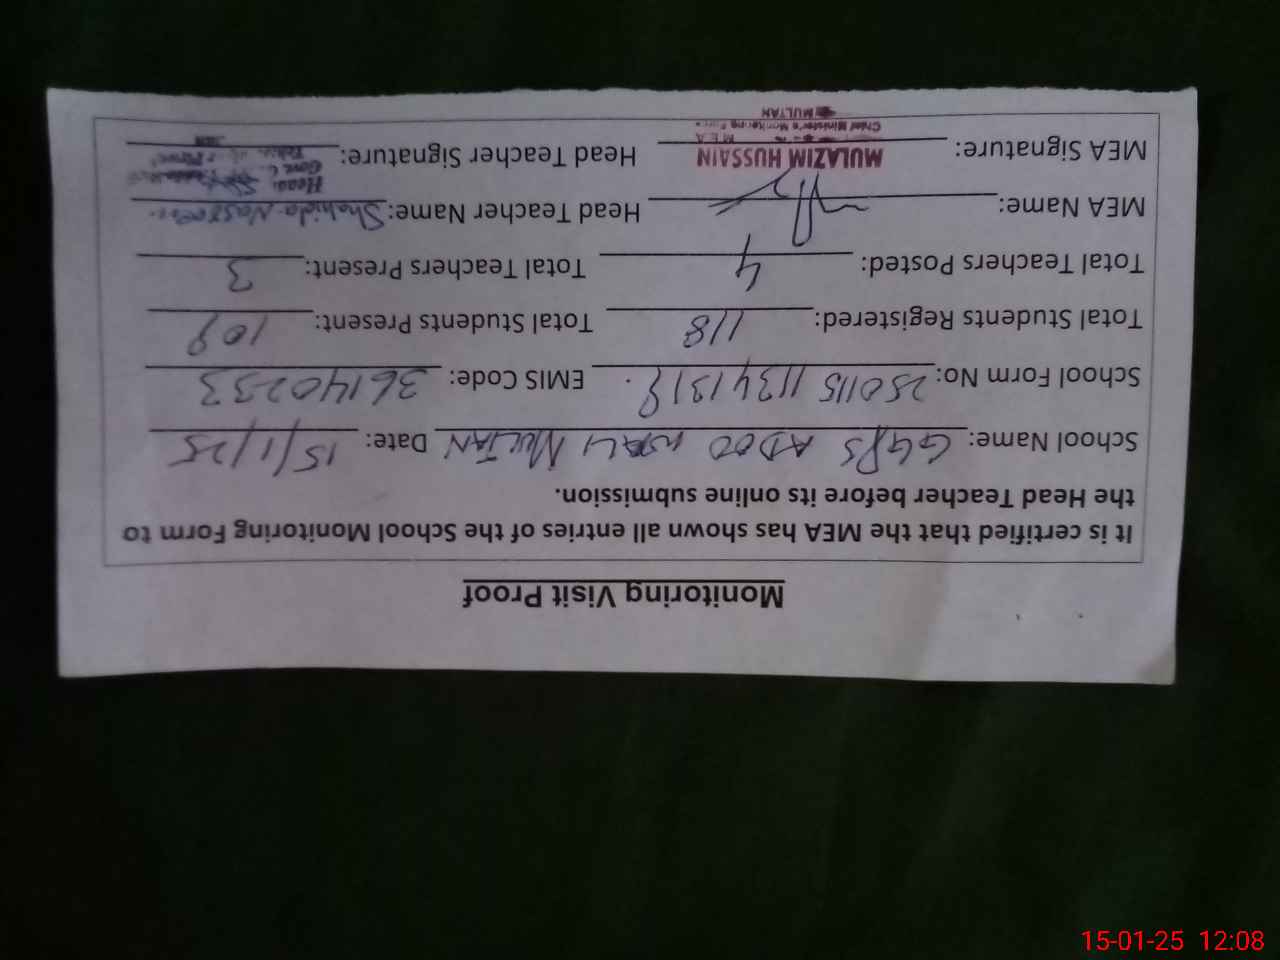 Monitoring Visit Proof
It is certified that the MEA has shown all entries of the School Monitoring Form to
the Head Teacher before its online submission.
School Name: GGPS ADOO WALI MULTAN Date: 15/1/25
School Form No: 250115 11341319. EMIS Code: 36140233
Total Students Registered: 118 Total Students Present: 109
Total Teachers Posted: 4 Total Teachers Present: 3
MEA Name: Head Teacher Name: Shahida Nasreen
MEA Signature: MULAZIM HUSSAIN Head Teacher Signature:
M E A
Chief Minister's Monitoring Force
MULTAN
15-01-25 12:08